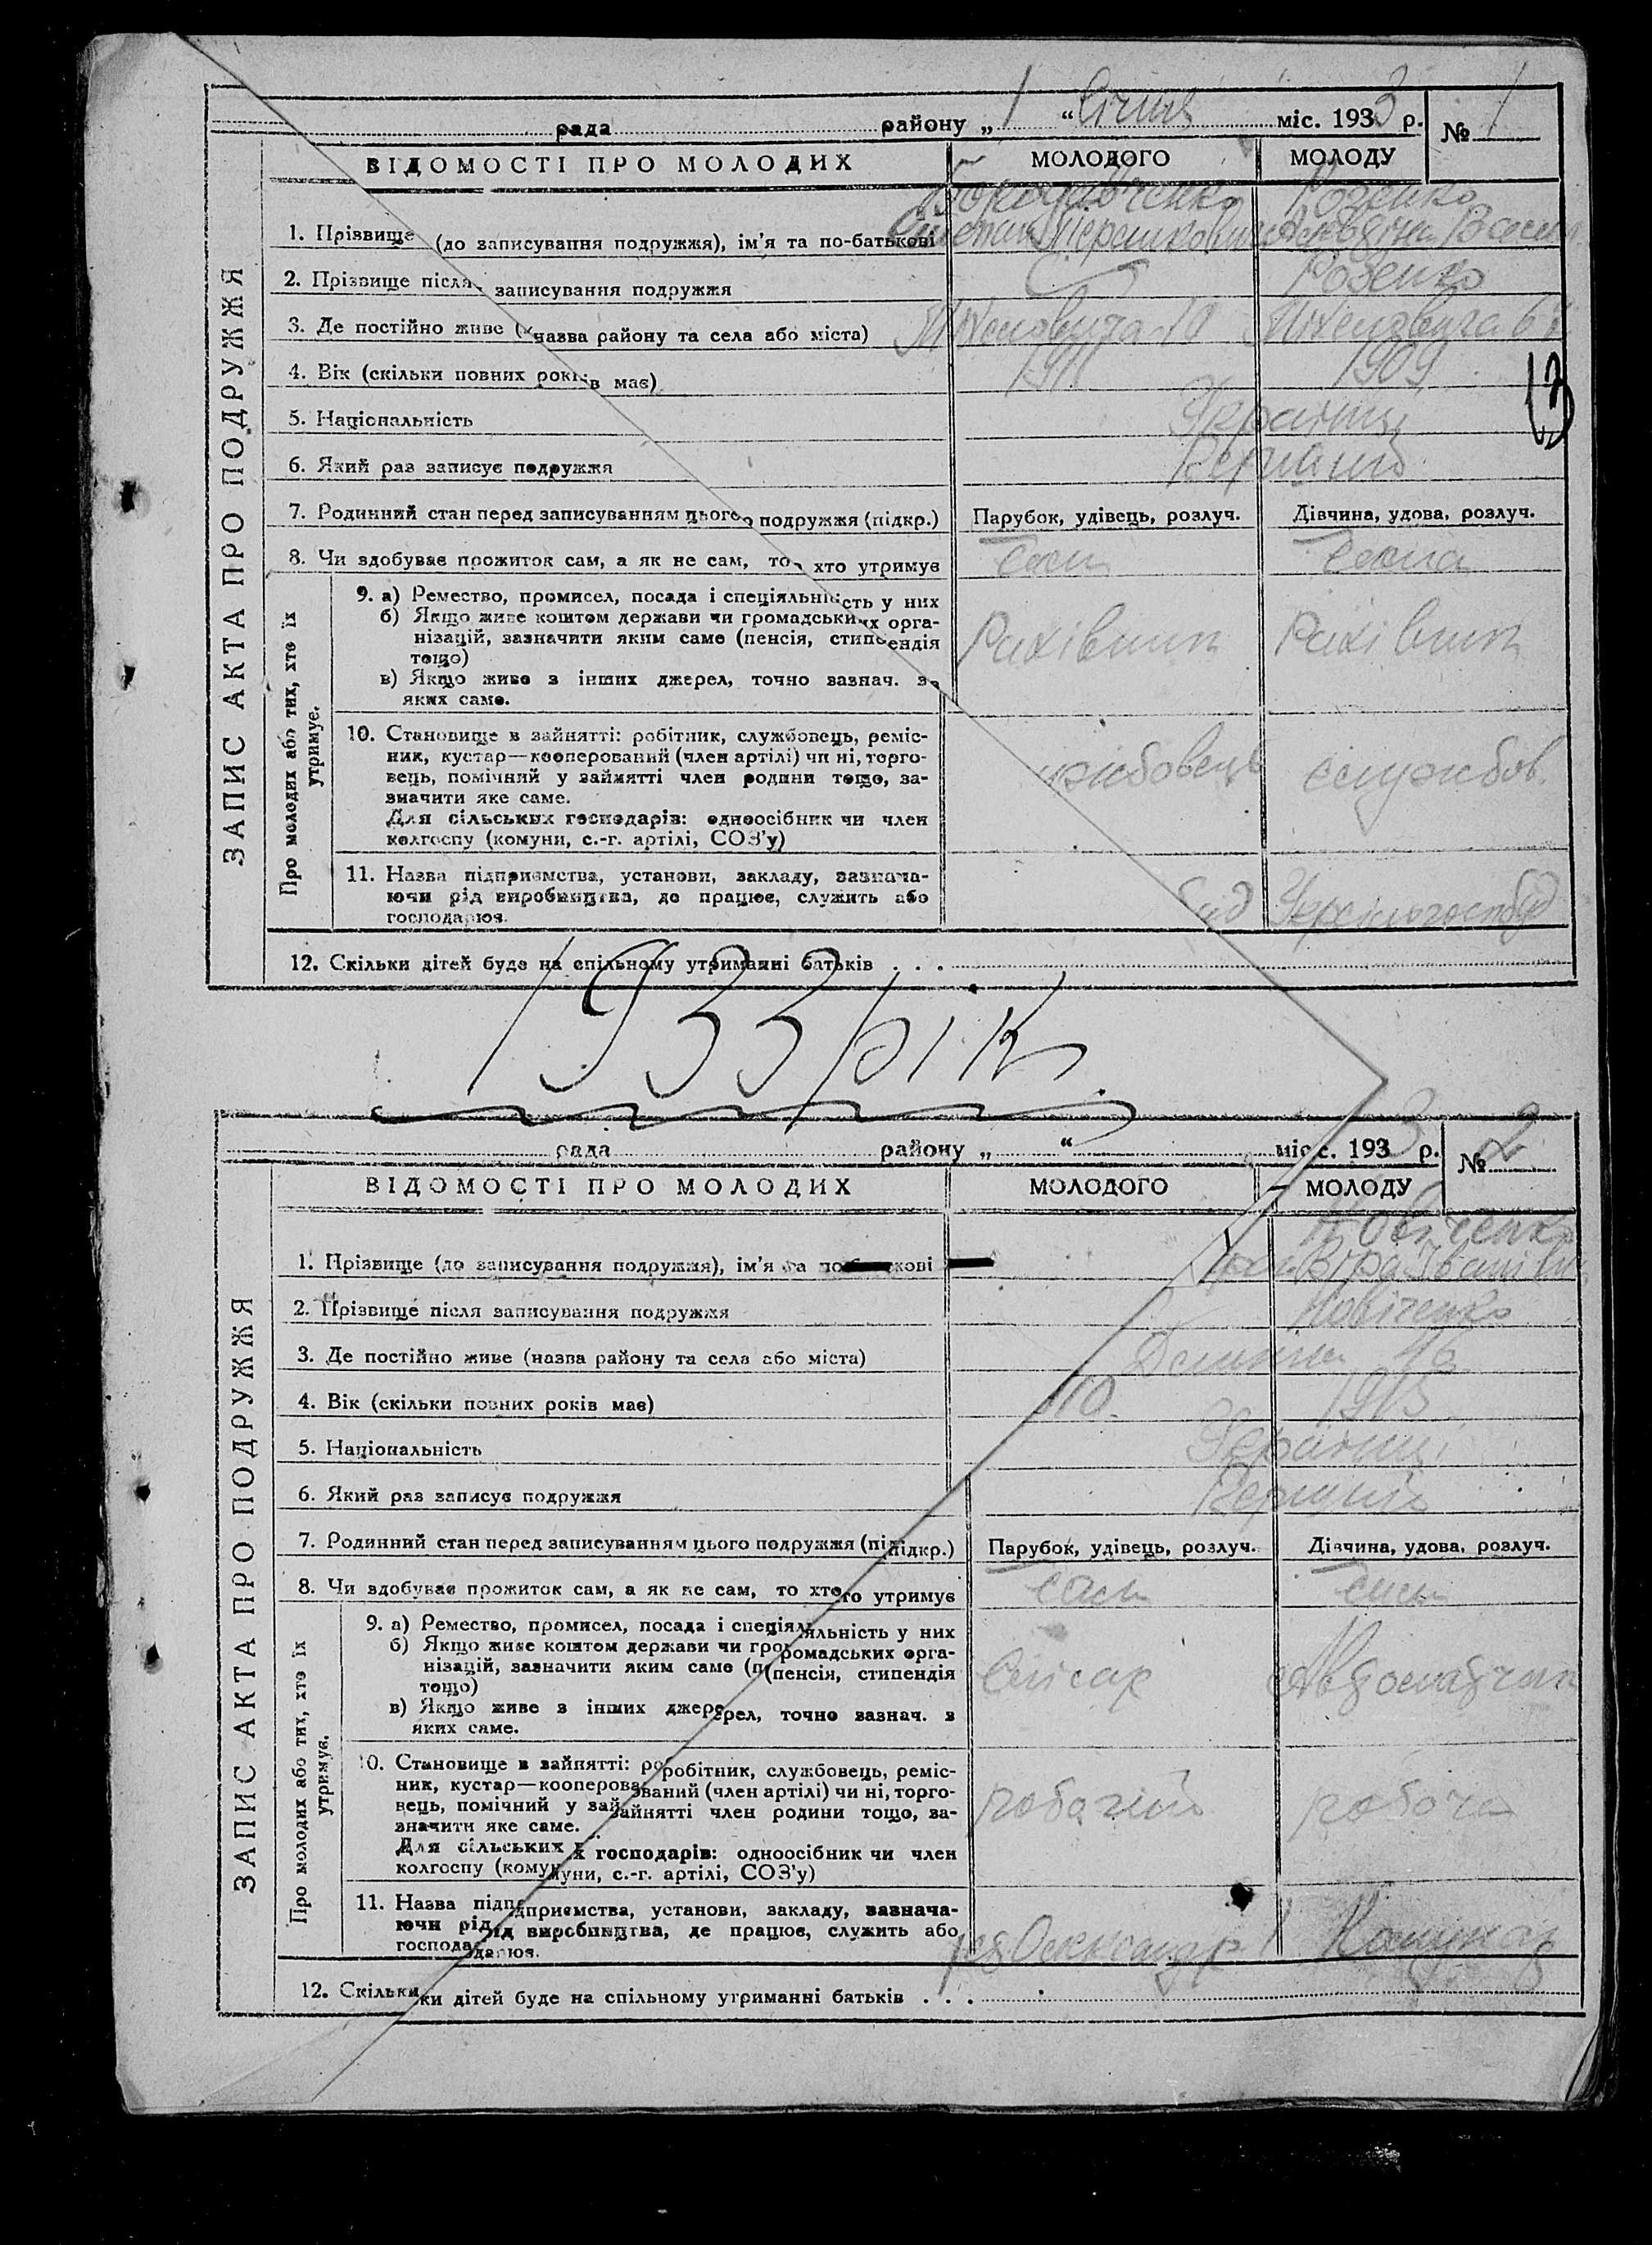 рада району „ 1 “ Січня міс. 1933 р. № 1
ВІДОМОСТІ ПРО МОЛОДИХ МОЛОДОГО МОЛОДУ
ЗАПИС АКТА ПРО ПОДРУЖЖЯ
Розенко
1. Прізвище (до записування подружжя), ім'я та по-батькові
2. Прізвище після записування подружжя Розенко
3. Де постійно живе (назва району та села або міста)
4. Вік (скільки повних років має) 1911 1909
13
5. Національність Українці
6. Який раз записує подружжя Перший
7. Родинний стан перед записуванням цього подружжя (підкр.) Парубок, удівець, розлуч. Дівчина, удова, розлуч.
8. Чи здобуває прожиток сам, а як не сам, то хто утримує сам сама
Про молодих або тих, хто їх утримує.
9. а) Ремество, промисел, посада і спеціяльність у них
б) Якщо живе коштом держави чи громадських орга-
нізацій, зазначити яким саме (пенсія, стипендія
тощо) Рахівник Рахівник
в) Якщо живе з інших джерел, точно зазнач. з
яких саме.
10. Становище в зайнятті: робітник, службовець, реміс-
ник, кустар—кооперований (член артілі) чи ні, торго-
вець, помічний у зайнятті член родини тощо, за- жбовець службов.
значити яке саме.
Для сільських господарів: одноосібник чи член
колгоспу (комуни, с.-г. артілі, СОЗ'у)
11. Назва підприємства, установи, закладу, зазнача-
ючи рід виробництва, де працює, служить або буд Укрсільгоспбуд
господарює.
12. Скільки дітей буде на спільному утриманні батьків . . .
1933 рік.
рада району „ “ міс. 1933 р. № 2
ВІДОМОСТІ ПРО МОЛОДИХ МОЛОДОГО МОЛОДУ
ЗАПИС АКТА ПРО ПОДРУЖЖЯ
Новіченко
1. Прізвище (до записування подружжя), ім'я та по-батькові Віра Іванівн
2. Прізвище після записування подружжя Новіченко
3. Де постійно живе (назва району та села або міста)
4. Вік (скільки повних років має) 10. 1913
5. Національність Українці
6. Який раз записує подружжя Перший
7. Родинний стан перед записуванням цього подружжя (підкр.) Парубок, удівець, розлуч. Дівчина, удова, розлуч.
8. Чи здобуває прожиток сам, а як не сам, то хто утримує сам сам
Про молодих або тих, хто їх утримує.
9. а) Ремество, промисел, посада і спеціяльність у них
б) Якщо живе коштом держави чи громадських орга-
нізацій, зазначити яким саме (пенсія, стипендія
тощо) Слісар
в) Якщо живе з інших джерел, точно зазнач. з
яких саме.
10. Становище в зайнятті: робітник, службовець, реміс-
ник, кустар—кооперований (член артілі) чи ні, торго-
вець, помічний у зайнятті член родини тощо, за- робочий робоча
значити яке саме.
Для сільських господарів: одноосібник чи член
колгоспу (комуни, с.-г. артілі, СОЗ'у)
11. Назва підприємства, установи, закладу, зазнача-
ючи рід виробництва, де працює, служить або
господарює.
12. Скільки дітей буде на спільному утриманні батьків . . .